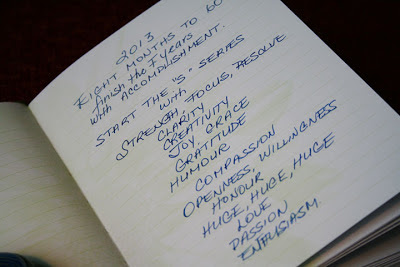 2013
EIGHT MONTHS TO GO
finish the 7 years
with ACCOMPLISHMENT.
START THE "S" SERIES
with
STRENGTH, FOCUS, RESOLVE
CLARITY
CREATIVITY
JOY GRACE
GRATITUDE
HUMOUR
COMPASSION
OPENNESS, WILLINGNESS
HONOUR
HUGE, HUGE, HUGE
LOVE
PASSION
ENTHUSIASM.